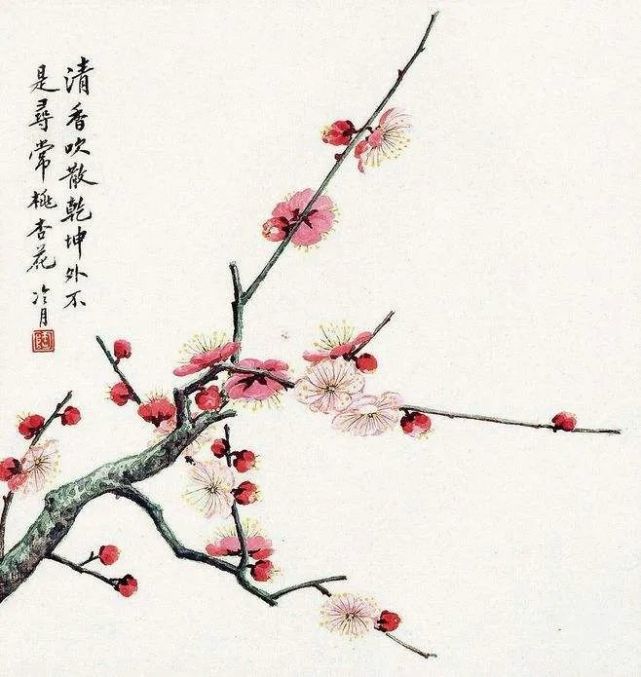 清香吹散乾坤外不
是尋常桃杏花
冷月